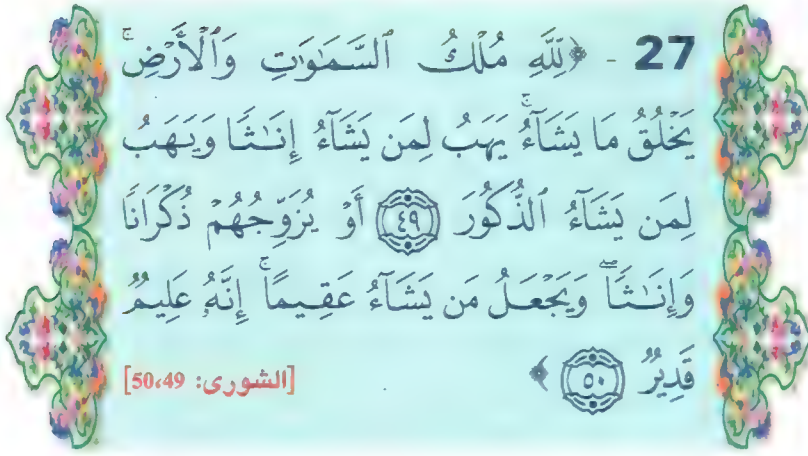 27 - ﴿لِّلَّهِ مُلْكُ ٱلسَّمَٰوَٰتِ وَٱلْأَرْضِ ۚ
يَخْلُقُ مَا يَشَآءُ ۚ يَهَبُ لِمَن يَشَآءُ إِنَٰثًا وَيَهَبُ
لِمَن يَشَآءُ ٱلذُّكُورَ ٤٩ أَوْ يُزَوِّجُهُمْ ذُكْرَانًا
وَإِنَٰثًا ۖ وَيَجْعَلُ مَن يَشَآءُ عَقِيمًا ۚ إِنَّهُۥ عَلِيمٌ
قَدِيرٌ ٥٠ ﴾ [الشورى: 50،49]